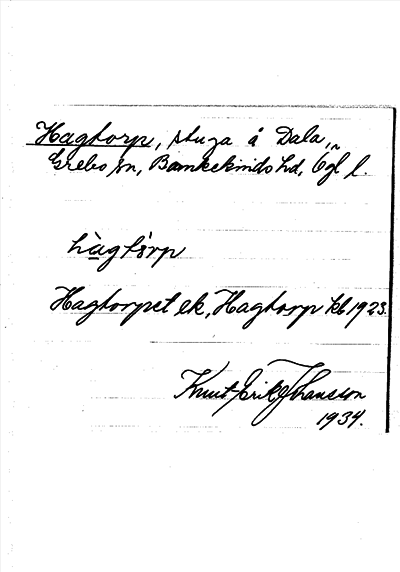 Hagtorp, stuga å Dala,
Grebo sn, Bankekinds hd, Ögl l.
hàgtórp
Hagtorpet ek, Hagtorp kb 1923.
Knut Erik Johansson
1934.